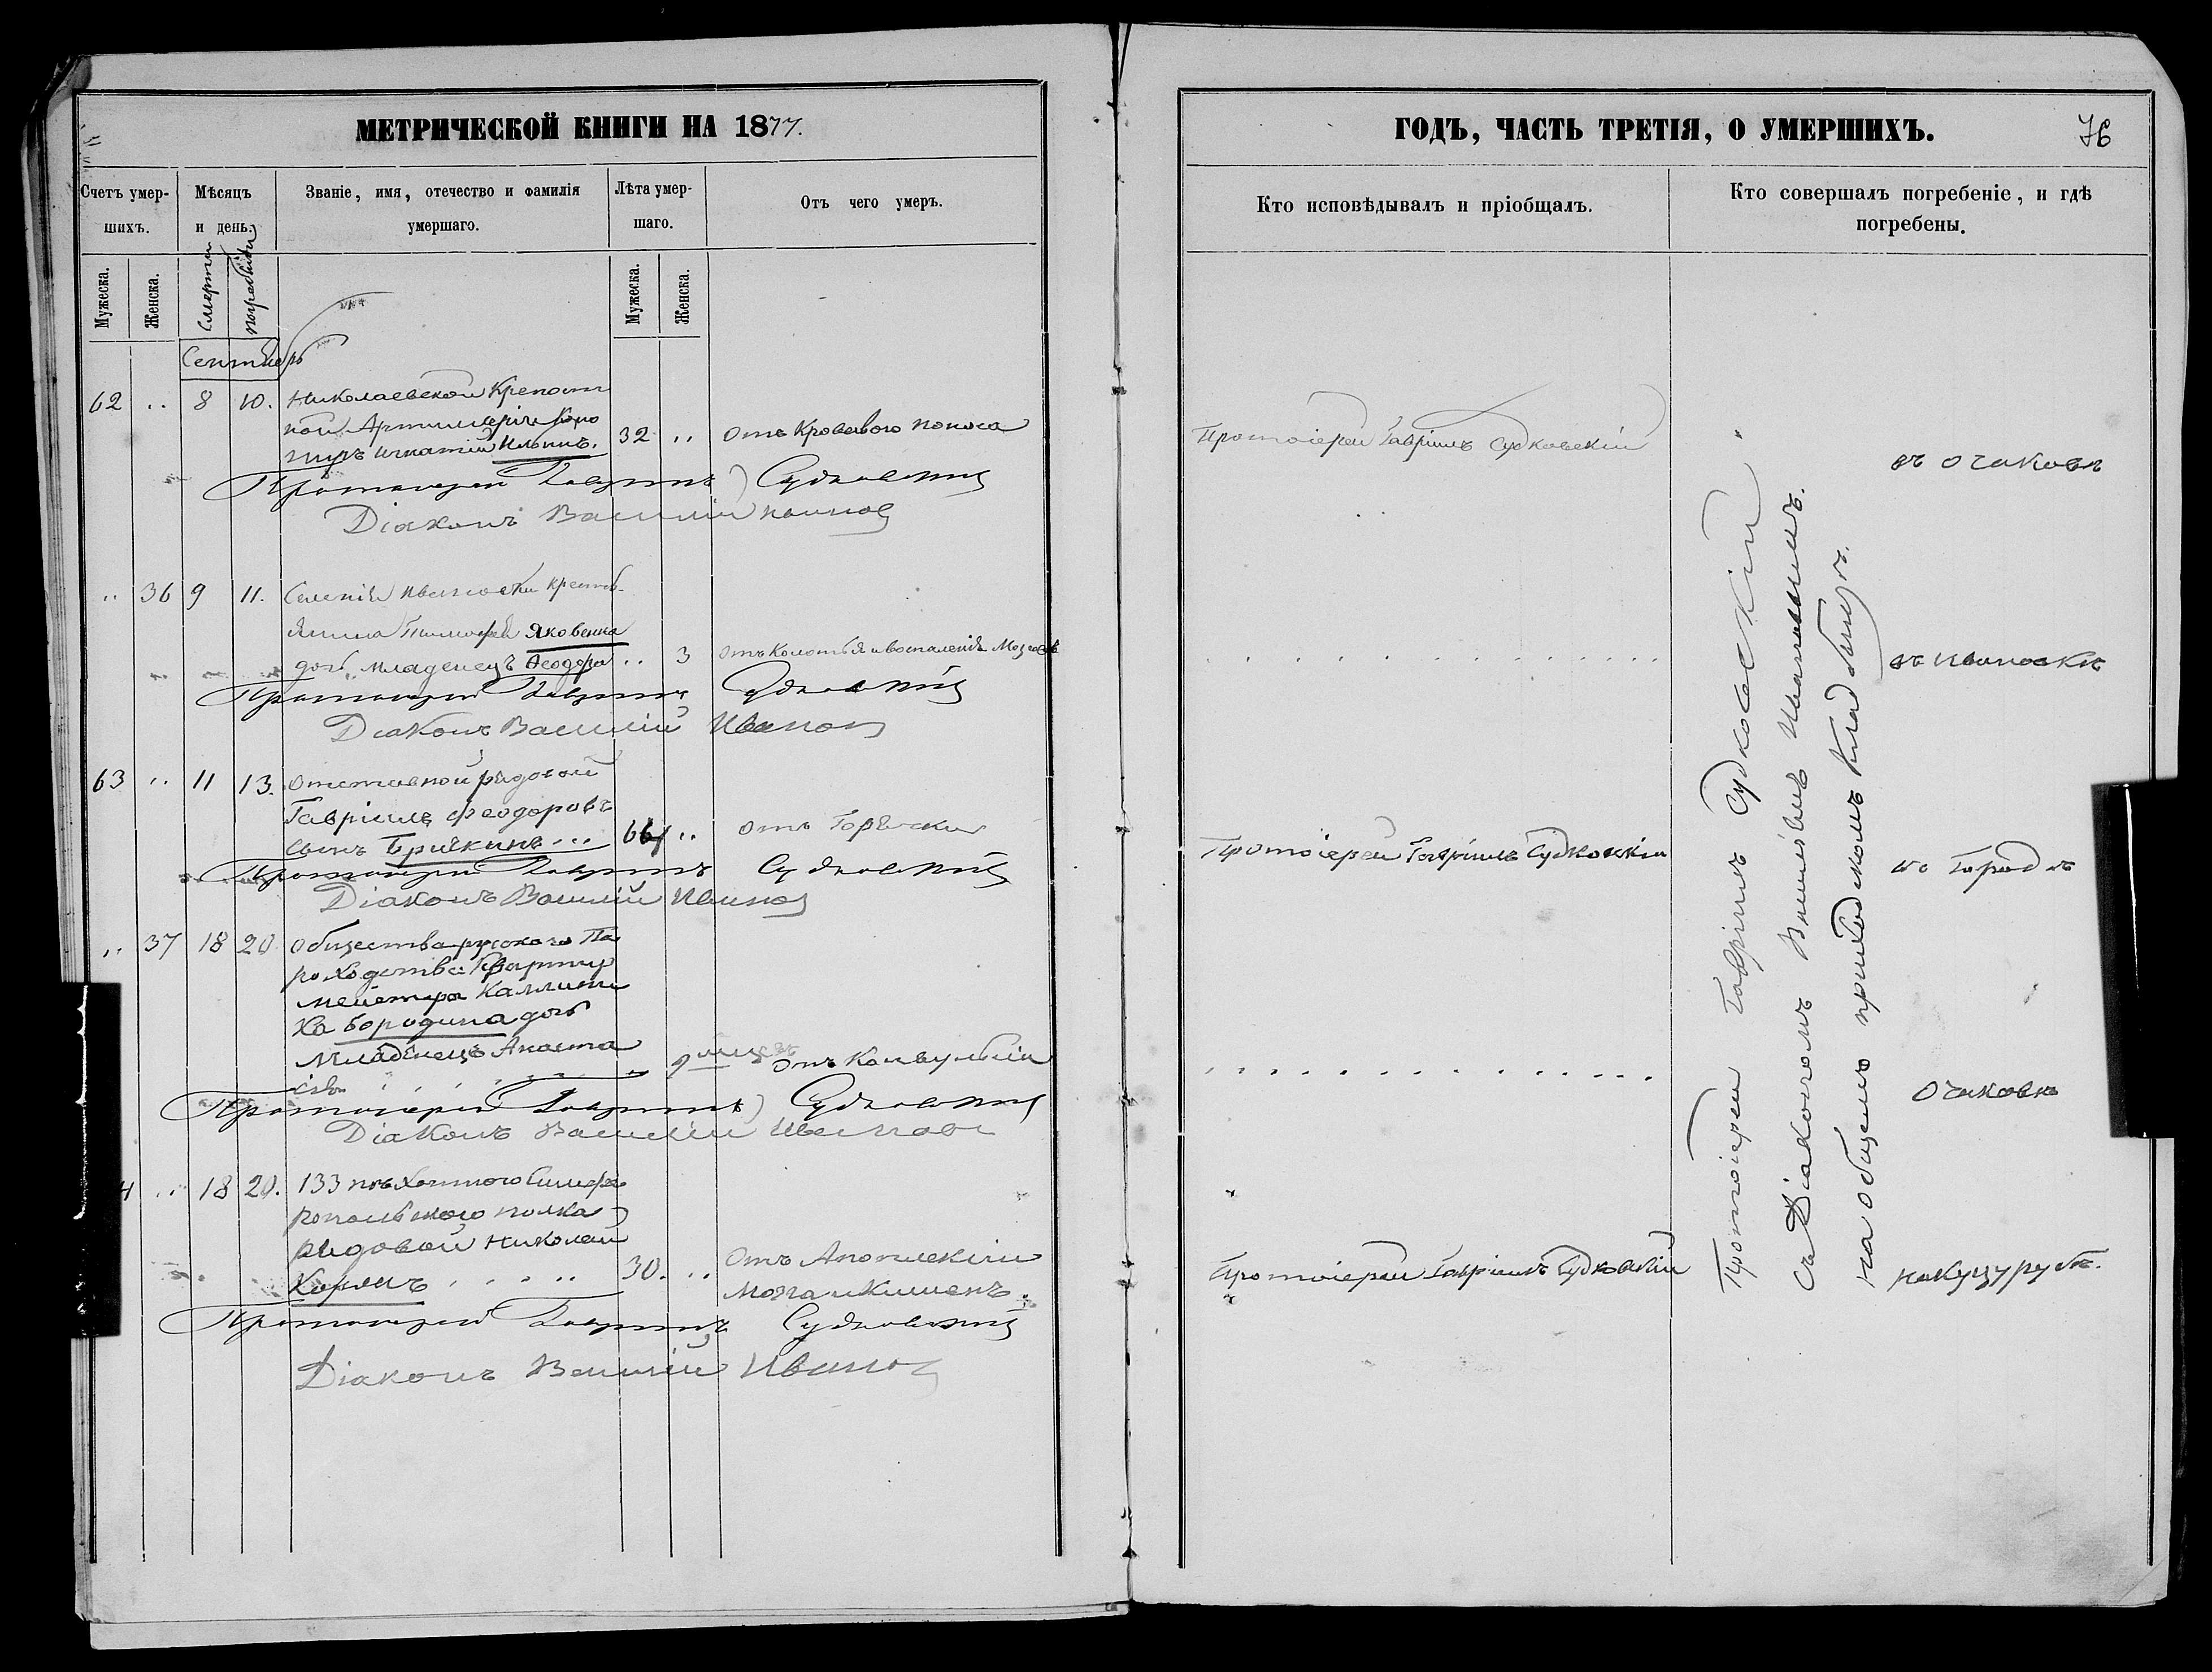 МЕТРИЧЕСКОЙ КНИГИ НА 1877.
Счетъ умер-
шихъ.
Мѣсяцъ
и день.
Званіе, имя, отечество и фамилія
умершаго.
Лѣта умер-
шаго.
Отъ чего умеръ.
Мужеска.
Женска.
Смерти
погребенія
Мужеска.
Женска.
Сентябрь
62 .. 8 10. Николаевской Крепост
ной Артиллеріи Кано
ниръ Игнатій Ильинъ. 32 .. Отъ Кроваваго поноса
Протоіерей Гавріилъ Судковскій
Діаконъ Василій Ивановъ
.. 36 9 11. Селенія Ивановки крестья-
нина Тимофея Яковенка
дочь младенецъ Ѳеодора .. 3 Отъ Колотья и воспаленія Мозговъ
Протоіерей Гавріилъ Судковскій
Діаконъ Василій Ивановъ
63 .. 11 13. Отставной рядовой
Гавріилъ Феодоровъ
сынъ 66 .. Отъ Горячки
Протоіерей Гавріилъ Судковскій
Діаконъ Василій Ивановъ
.. 37 18 20 Общества русскаго Па
роходства Квартир
мейстера Каллистра
Бородина дочь
Младенецъ Анаста
сія 9 мцевъ Отъ Конвульсіи
Протоіерей Гавріилъ Судковскій
Діаконъ Василій Ивановъ
4 .. 18 20. 133 пѣхотнаго Симфе
ропольскаго полка
рядовой Николай
30. .. Отъ Апоплексіи
мозга и Кишекъ.
Протоіерей Гавріилъ Судковскій
Діаконъ Василій Ивановъ
ГОДЪ, ЧАСТЬ ТРЕТІЯ, О УМЕРШИХЪ.
76
Кто исповѣдывалъ и пріобщалъ.
Кто совершалъ погребеніе, и гдѣ
погребены.
Протоіерей Гавріилъ Судковскій
Протоіерей Гавріилъ Судковскій
Протоіерей Гавріилъ Судковскій
Протоіерей Гавріилъ Судковскій
съ Діакономъ Василіемъ Ивановымъ.
на общемъ приходскомъ Кладбищѣ.
въ Очаковѣ
въ Ивановкѣ
въ Городѣ
Очаковѣ
на Куцурубѣ.